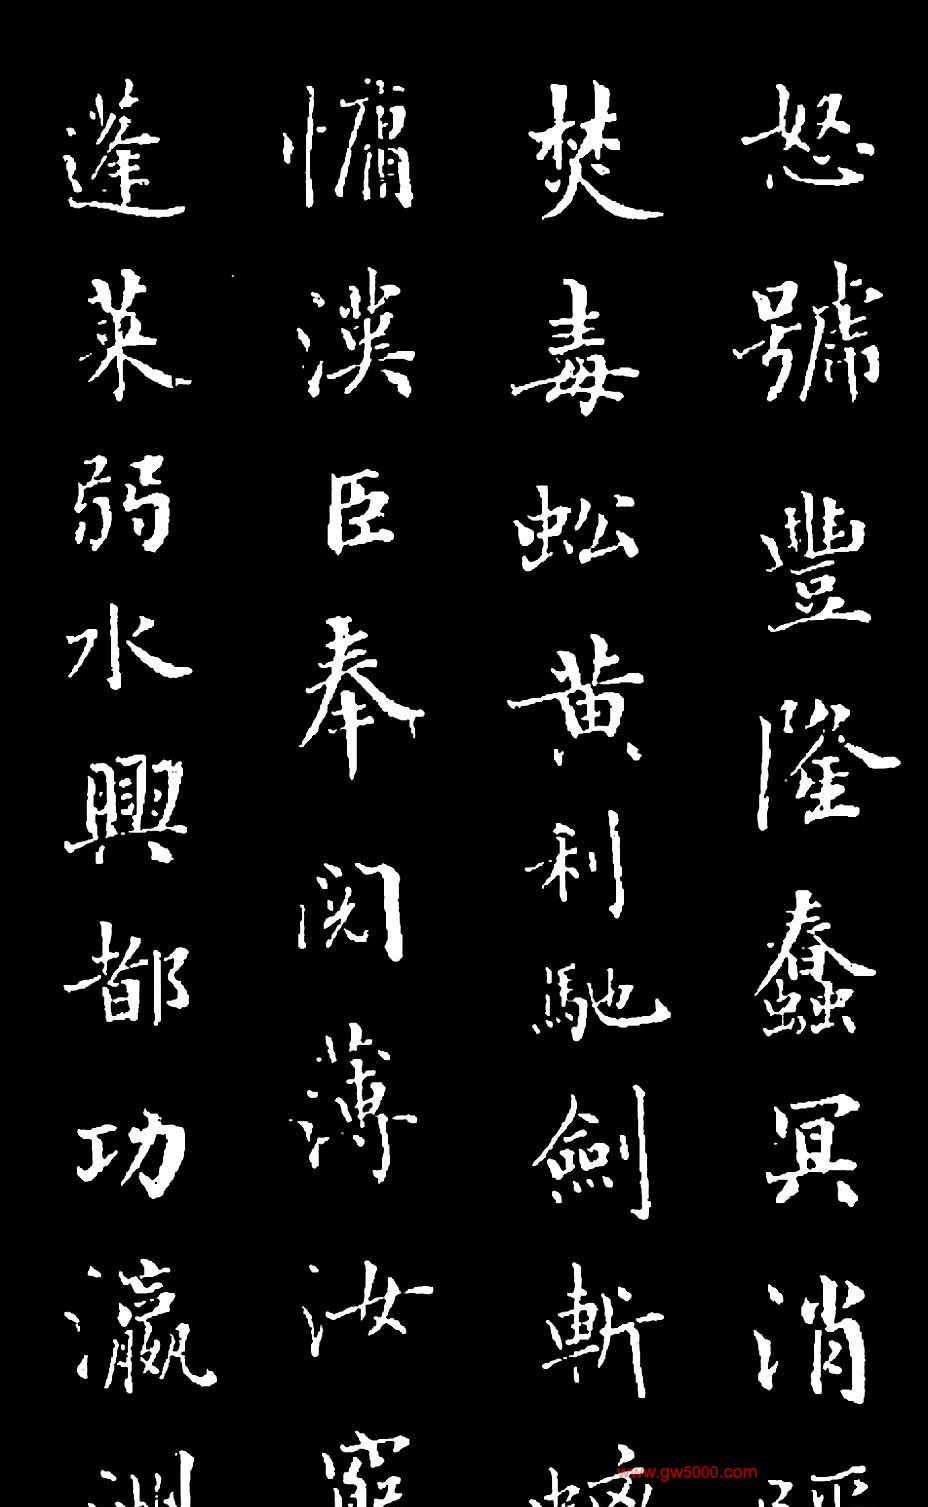 怒號豐隆蠢冥消
焚毒蚣黃利馳劍斬
慵漢臣奉閱薄汝窮
蓬萊弱水興都功瀛洲
www.gw5000.com